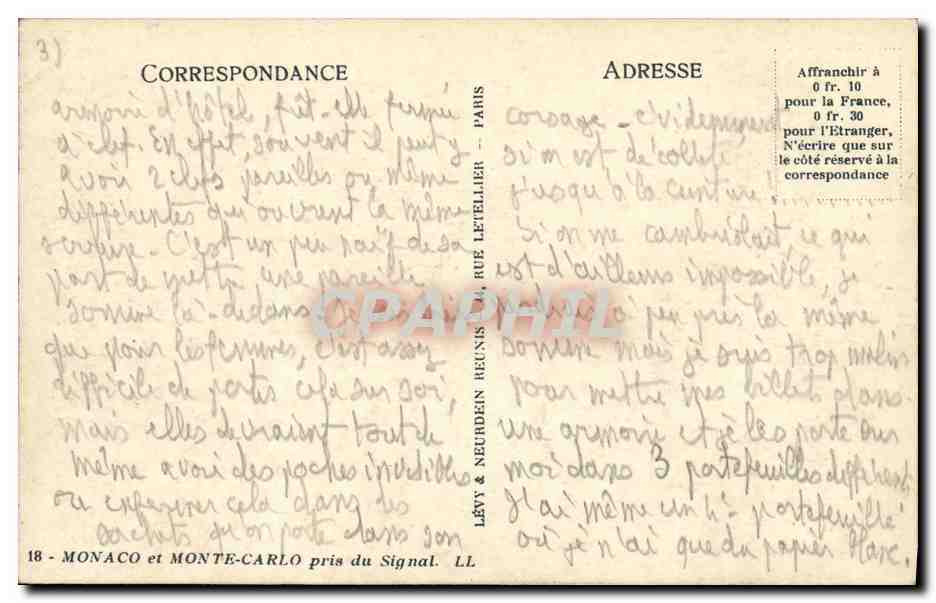 3)
CORRESPONDANCE
armoire d'hôtel, fût-elle fermée
à clef. En effet, souvent il peut y
avoir 2 clefs pareilles ou même
différentes qui ouvrent la même
serrure. C'est un peu naïf de sa
part de mettre une pareille
somme là-dedans.
que pour les femmes, c'est assez
difficile de porter cela sur soi,
mais elles devraient tout de
même avoir des poches invisibles
ou enfermer cela dans des
sachets qu'on porte dans son
18 - MONACO et MONTE-CARLO pris du Signal. LL
LÉVY & NEURDEIN REUNIS 44, RUE LETELLIER -- PARIS
CPAPHIL
ADRESSE
Affranchir à
0 fr. 10
pour la France,
0 fr. 30
pour l'Etranger,
N'écrire que sur
le côté réservé à la
correspondance
corsage - évidemment
si on est décolleté
jusqu'à la ceinture!
Si on me cambriolait, ce qui
est d'ailleurs impossible, je
perdrais à peu près la même
somme mais je suis trop malin
pour mettre mes billets dans
une armoire et je les porte sur
moi dans 3 portefeuilles différents
J'ai même un 4e portefeuille
où je n'ai que du papier blanc.